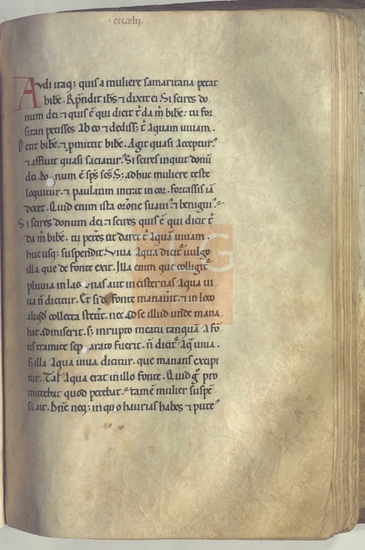 ccixlii.
Avdi itaq; quis a muliere samaritana petat
bibe. Rp̄ndit ih̄s ⁊ dixit ei. Si scires do
num dei ⁊ quis ē qui dicit t̄ da m̄ bibe. tu for
sitan petisses Ab eo ⁊ dediss; t̄ Aquam uiuam.
Petit bibe. ⁊ p̄mittit bibe. Aget quasi Accepturꝰ.
⁊ affluit quasi saciaturꝰ. Si scires inquit donū
dei. bonum ē sp̄s sc̄s. S; adhuc muliere tecte
loquitur. ⁊ paulatim intrat in cor. fortassis iā
docet. Quid enim ista or̄one suauiꝰ ⁊ benigniꝰ.
Si scires donum dei. ⁊ scires quis ē qui dicit t̄
da m̄ bibe. tu peteres ut daret t̄ Aquā uiuam.
hucusq; suspendit. Viua Aqua dicit᷑ uulgo
illa que de fonte exit. Illa enim que colligit᷑
pluuia in lacunas aut in cisternas Aqua ui
ua n̄ dicitur. Et si de fonte manauit. ⁊ in loco
aliq̊ collecta stet̄it. nec ad se illud unde mana
bat admiserit. s; inrupto meatu tanquā A fo
tis tramite separato fuerit. n̄ dicit᷑ Aq̄ uiua.
S; illa Aqua uiua dicitur. que manans excipi
tur. Talꝭ Aqua erat in illo fonte. Quid g̊ pro
mittebat quod petebat. tam̄ mulier suspē
sa ait. Dn̄e neq; in quo haurias habes ⁊ puteꝰ